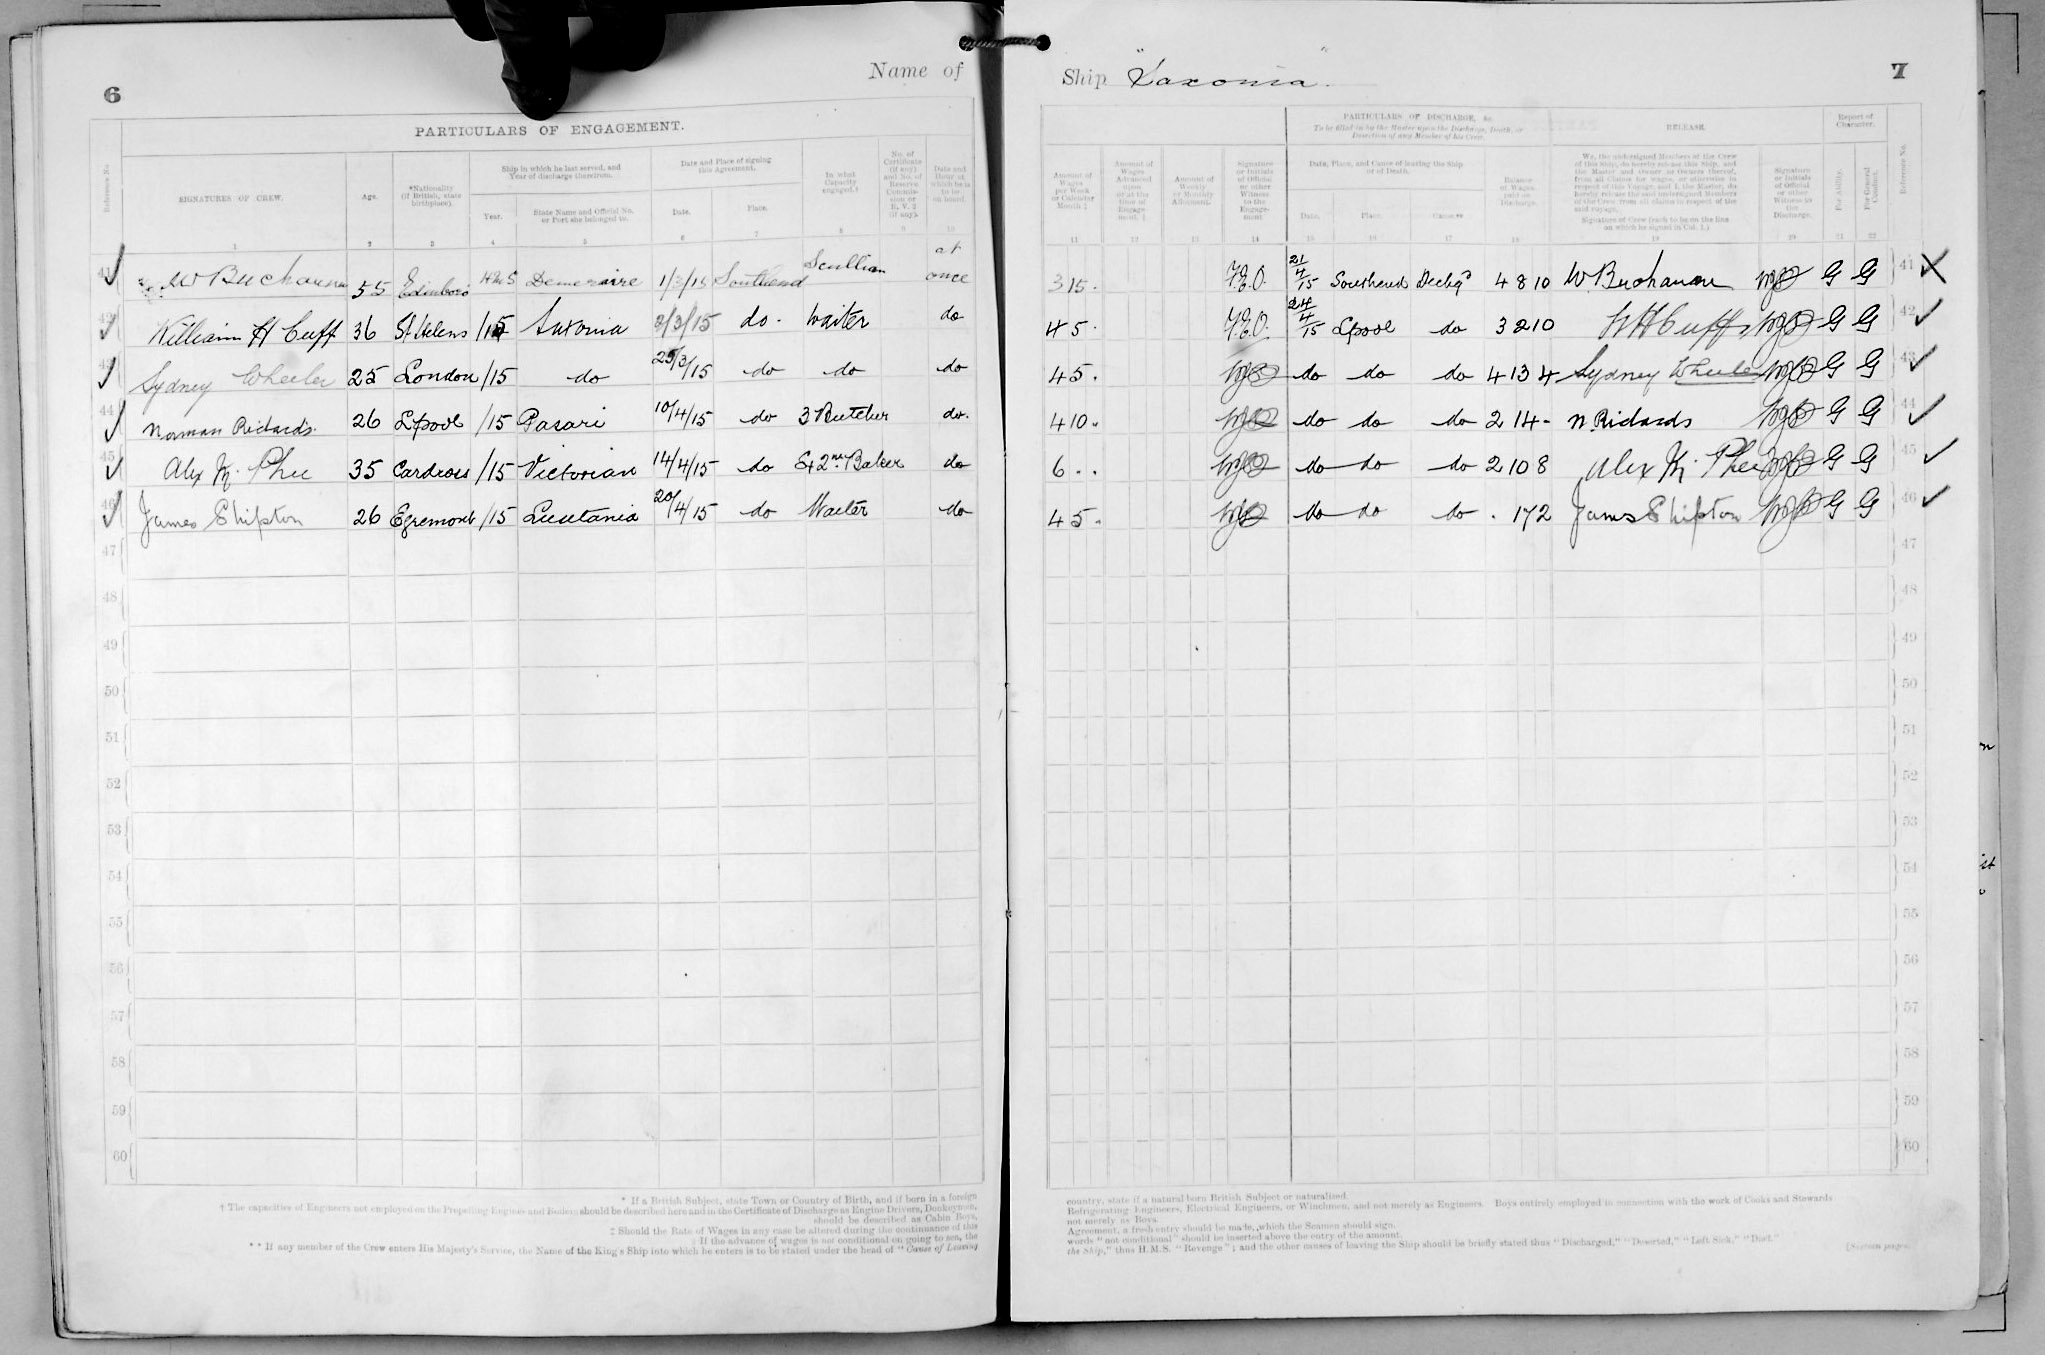 6
Name of
PARTICULARS OF ENGAGEMENT.
Reference No.
SIGNATURES OF CREW.
Age.
*Nationality (If British, state birthplace).
Ship in which he last served, and Year of discharge therefrom.
Year.
State Name and Official No. or Port she belonged to.
Date and Place of signing this Agreement.
Date.
Place.
In what Capacity engaged.†
No. of Certificate (if any) and No. of Reserve Commission or R. V. 2 (if any).
Date and Hour at which he is to be on board.
1 2 3 4 5 6 7 8 9 10
41 W Buchanan 55 Edinboro 5 Demeraire 1/3/15 Southend Scullion at once
42 William H Cuff 36 St Helens /15 Saxonia 2/3/15 do. Waiter do
43 Sydney Wheeler 25 London /15 do 25/3/15 do do do
44 Norman Richards. 26 Lpool /15 Pasari 10/4/15 do 3 Butcher do.
45 Alex Mc Phee 35 Cardross /15 Victorian 14/4/15 do 2nd Baker do
46 James Shipton 26 Egremont /15 Lusitania 20/4/15 do Waiter do
47
48
49
50
51
52
53
54
55
56
57
58
59
60
* If a British Subject, state Town or Country of Birth, and if born in a foreign
† The capacities of Engineers not employed on the Propelling Engines and Boilers should be described here and in the Certificate of Discharge as Engine Drivers, Donkeymen,
should be described as Cabin Boys,
‡ Should the Rate of Wages in any case be altered during the continuance of this
If the advance of wages is not conditional on going to sea, the
** If any member of the Crew enters His Majesty's Service, the Name of the King's Ship into which he enters is to be stated under the head of "Cause of Leaving
Ship "Saxonia".
7
PARTICULARS OF DISCHARGE, &c.
To be filled in by the Master upon the Discharge, Death, or Desertion of any Member of his Crew.
RELEASE.
Report of Character.
Amount of Wages per Week or Calendar Month ‡
Amount of Wages Advanced upon or at the time of Engagement.
Amount of Weekly or Monthly Allotment.
Signature or Initials of Official or other Witness to the Engagement
Date, Place, and Cause of leaving the Ship, or of Death.
Date.
Place.
Cause.**
Balance of Wages paid on Discharge.
We, the undersigned Members of the Crew of this Ship, do hereby release this Ship, and the Master and Owner or Owners thereof, from all Claims for wages, or otherwise in respect of this Voyage, and I, the Master, do hereby release the said undersigned Members of the Crew from all claims in respect of the said voyage.
Signature of Crew (each to be on the line on which he signed in Col. 1.)
Signature or Initials of Official or other Witness to the Discharge.
For Ability.
For General Conduct.
Reference No.
11 12 13 14 15 16 17 18 19 20 21 22
3 15. 21/4/15 Southend Dischgd 4 8 10 W. Buchanan G G 41
4 5. 24/4/15 Lpool do 3 2 10 W H Cuff G G 42
4 5. do do do 4 13 4 Sydney Wheeler G G 43
4 10. do do do 2 14 - N. Richards G G 44
6 . . do do do 2 10 8 Alex Mc Phee G G 45
4 5. do do do . 17 2 James Shipton G G 46
47
48
49
50
51
52
53
54
55
56
57
58
59
60
country, state if a natural born British Subject or naturalized.
Refrigerating Engineers, Electrical Engineers, or Winchmen, and not merely as Engineers. Boys entirely employed in connection with the work of Cooks and Stewards
not merely as Boys.
Agreement, a fresh entry should be made, which the Seamen should sign.
words "not conditional" should be inserted above the entry of the amount.
the Ship," thus H.M.S. "Revenge"; and the other causes of leaving the Ship should be briefly stated thus "Discharged," "Deserted," "Left Sick," "Died."